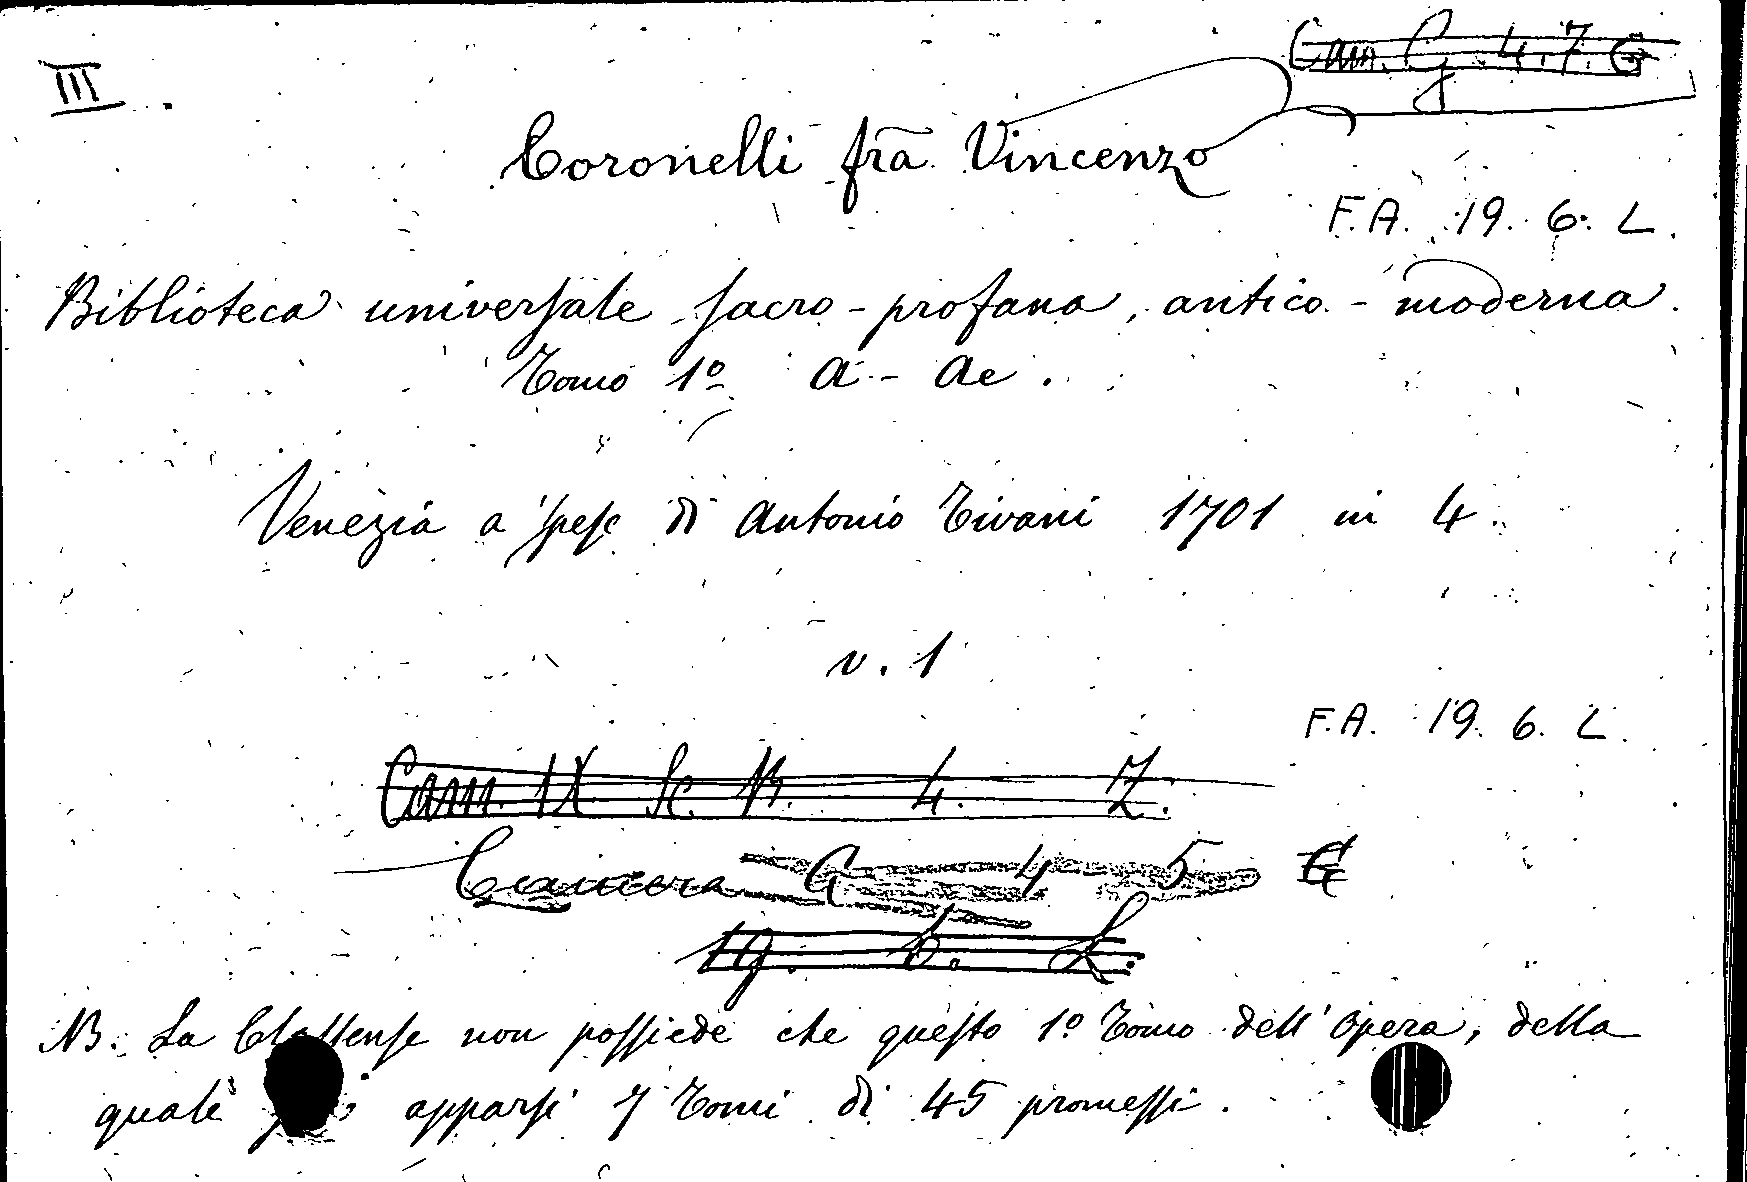 III
Cam. G. 4. 7. G
Coronelli frà Vincenzo
F.A. 19. 6. L.
Biblioteca universale sacro-profana, antico-moderna.
Tomo 1º A - Ae.
Venezia a spese di Antonio Tivani 1701 in 4.
v. 1
F.A. 19. 6. L.
Cam. IX Sc. M. 4. Z.
Camera G 4 5 G
19. 6. L.
NB. La Classense non possiede che questo 1º Tomo dell'Opera, della
quale apparsi 7 Tomi di 45 promessi.